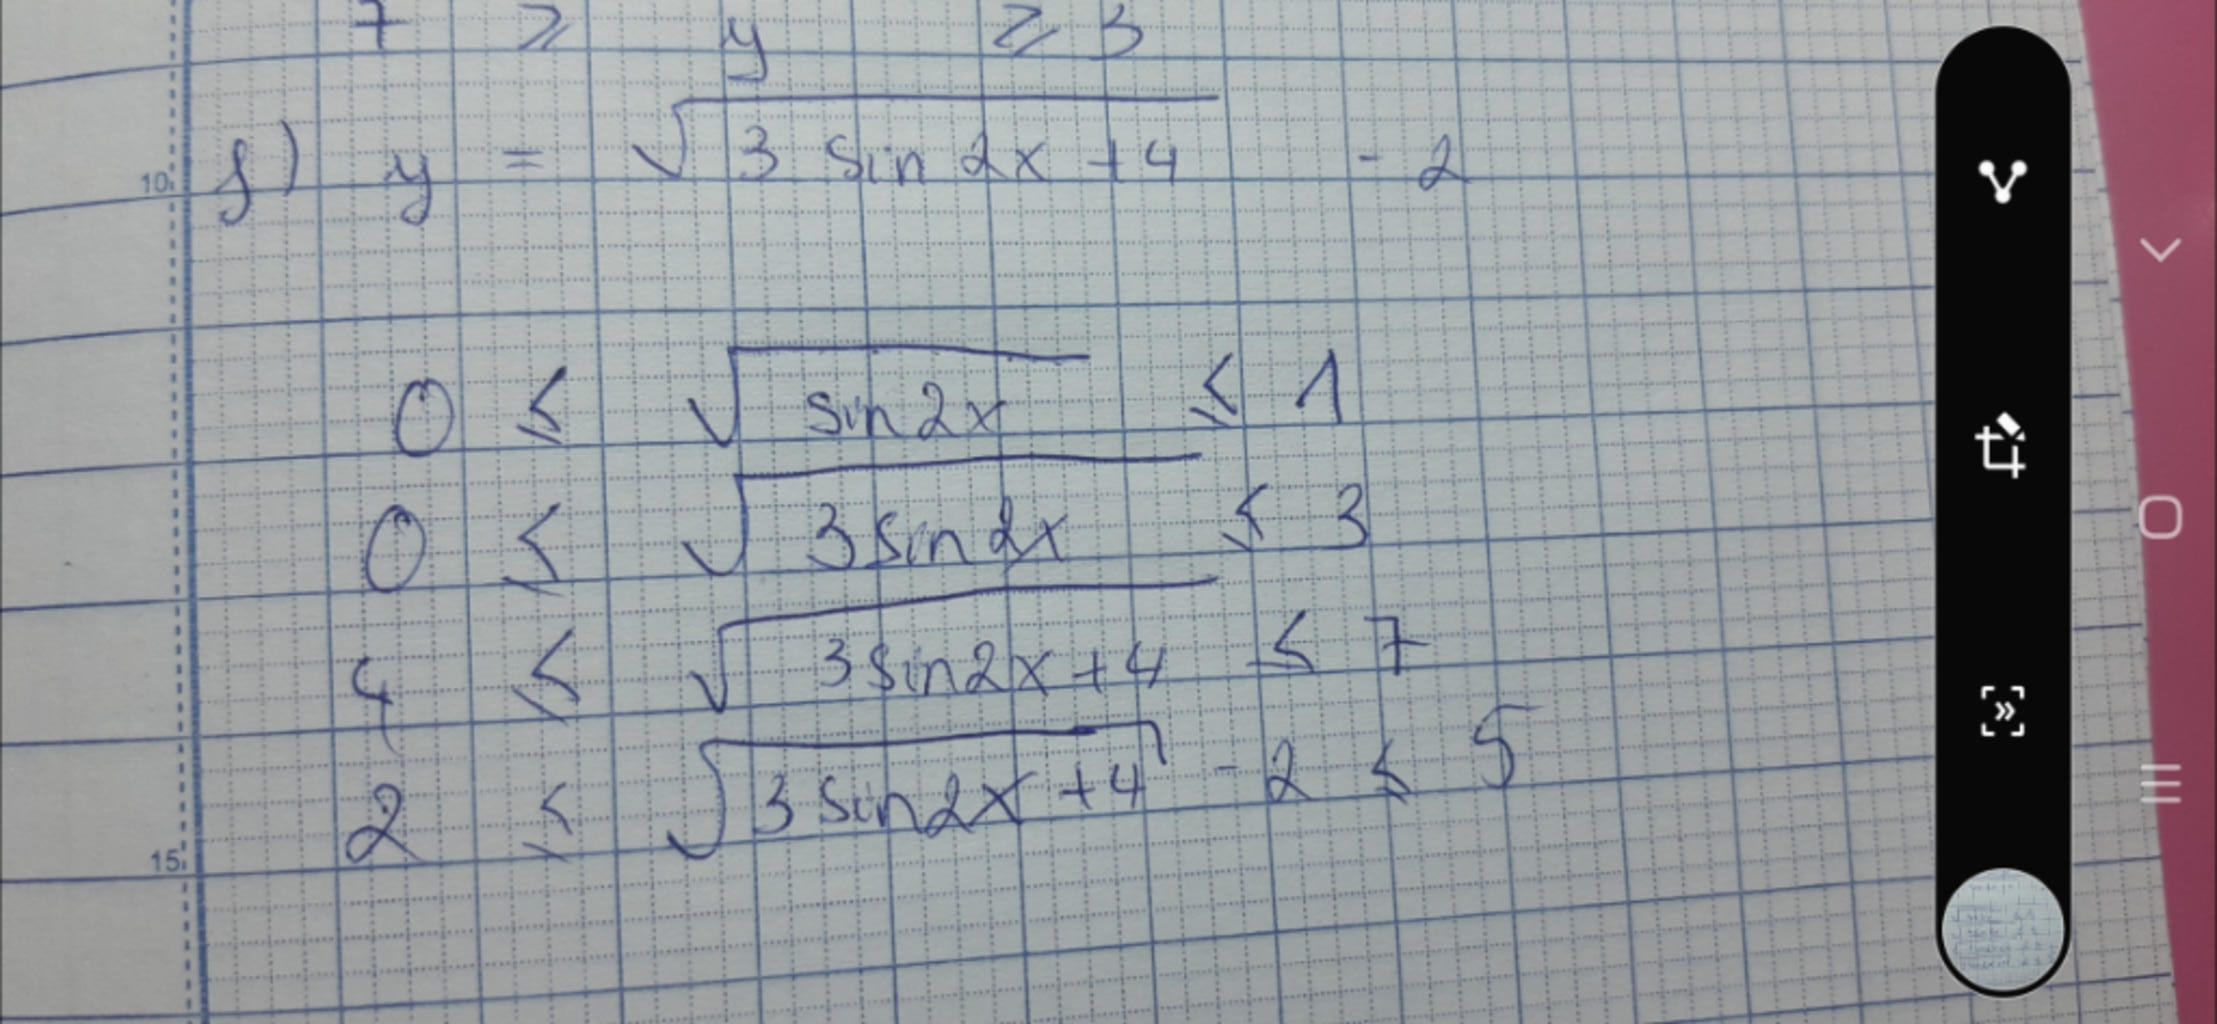 7 ≥ y ≥ 3
10 f) y = √(3 sin 2x + 4) - 2
0 ≤ √(sin 2x) ≤ 1
0 ≤ √(3 sin 2x) ≤ 3
4 ≤ √(3 sin 2x + 4) ≤ 7
15 2 ≤ √(3 sin 2x + 4) - 2 ≤ 5